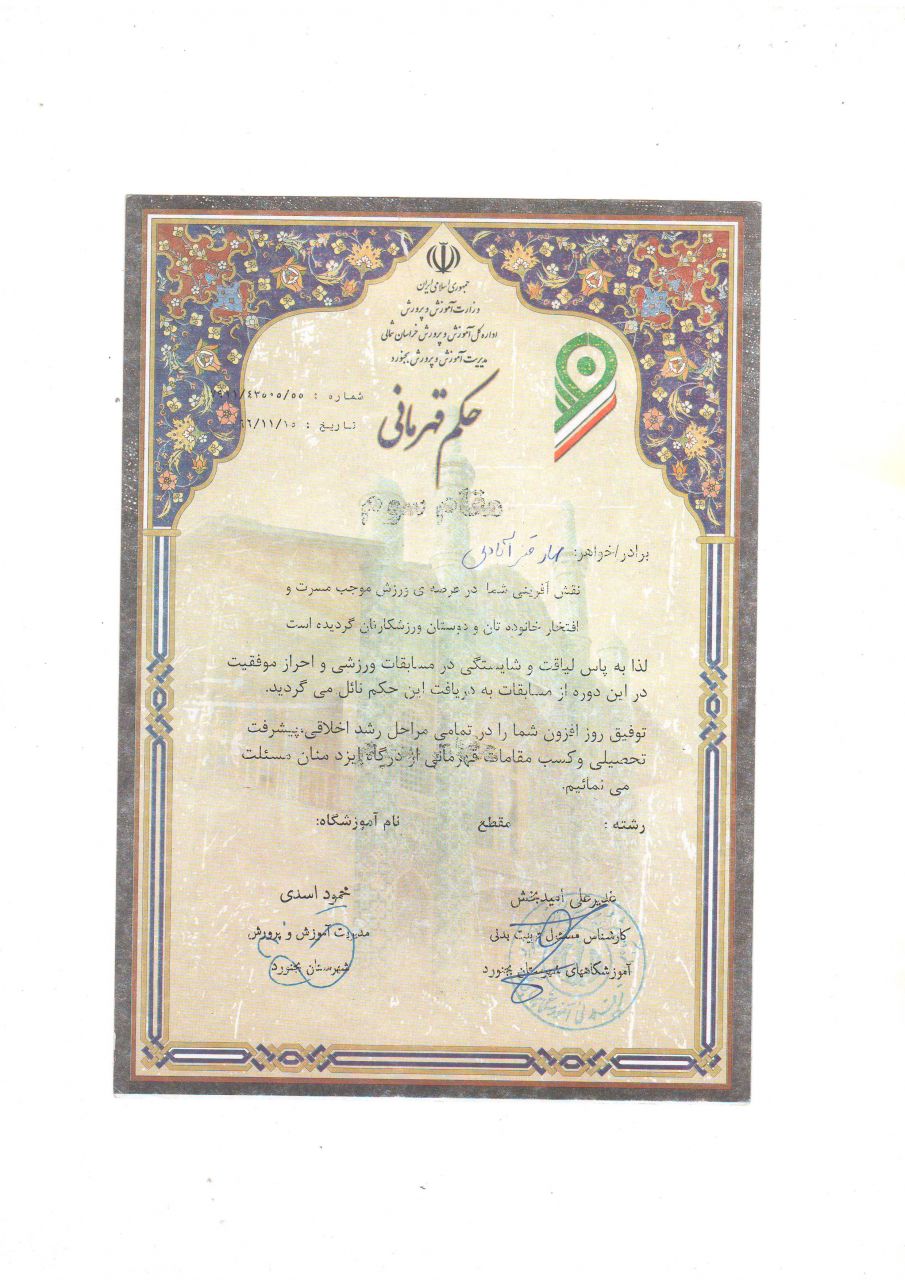 جمهوری اسلامی ایران
وزارت آموزش و پرورش
اداره کل آموزش و پرورش خراسان شمالی
مدیریت آموزش و پرورش بجنورد
حکم قهرمانی
شماره : /٤٣٥٠٥/٥٥
تاریخ : ٦٦/١١/١٥
مقام سوم
برادر/خواهر:
نقش آفرینی شما در عرصه ی ورزش موجب مسرت و
افتخار خانوده تان و دوستان ورزشکارتان گردیده است
لذا به پاس لیاقت و شایستگی در مسابقات ورزشی و احراز موفقیت
در این دوره از مسابقات به دریافت این حکم نائل می گردید.
توفیق روز افزون شما را در تمامی مراحل رشد اخلاقی،پیشرفت
تحصیلی وکسب مقامات قهرمانی از درگاه ایزد منان مسئلت
می نمائیم.
رشته : مقطع نام آموزشگاه:
غدیرعلی امیدبخش
کارشناس مسئول تربیت بدنی
آموزشگاههای شهرستان بجنورد
محمود اسدی
مدیریت آموزش و پرورش
شهرستان بجنورد